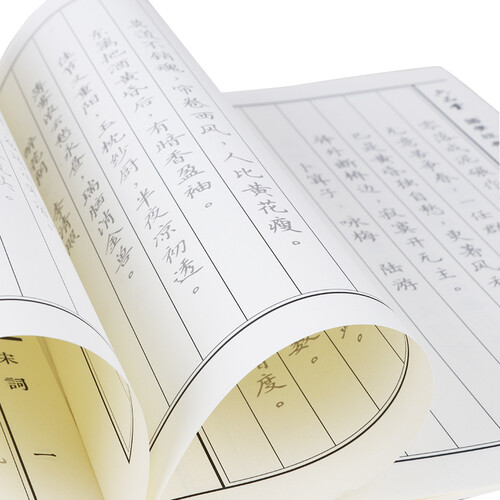 醉花阴 李清照
薄雾浓云愁永昼 瑞脑消金兽。
佳节又重阳，玉枕纱厨，半夜凉初透。
东篱把酒黄昏后，有暗香盈袖。
莫道不销魂，帘卷西风，人比黄花瘦。
卜算子 咏梅 陆游
驿外断桥边，寂寞开无主。
已是黄昏独自愁，更著风
无意苦争春，一任
零落成泥碾
度。
宋詞 一